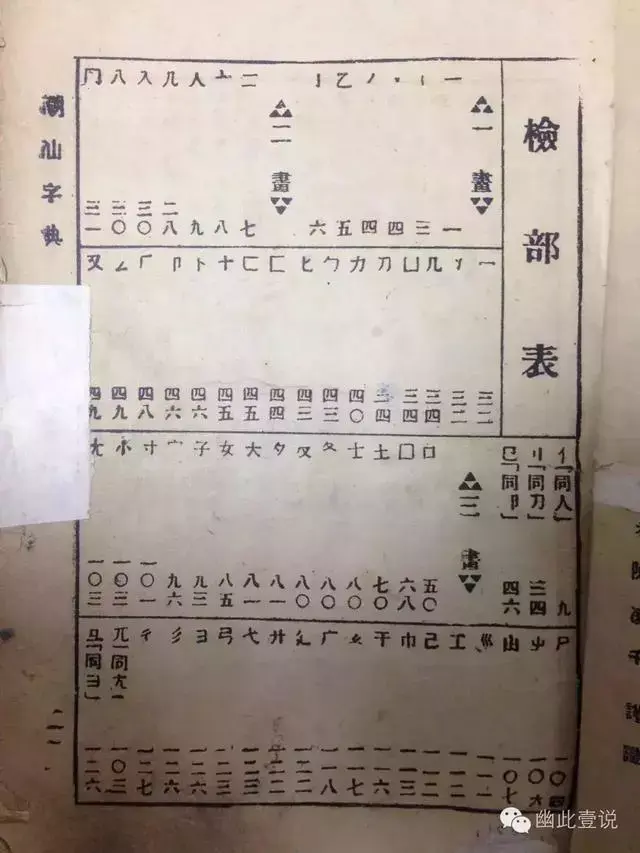 檢部表
一畫
一 一
丨 三
丶 四
丿 四
乙 五
亅 六
二畫
二 七
亠 八
人 九
儿 二八
入 三〇
八 三〇
冂 三一
冖 三二
冫 三二
几 三四
凵 三四
刀 三四
力 四〇
勹 四三
匕 四三
匚 四四
匸 四五
十 四五
卜 四六
卩 四六
厂 四八
厶 四九
又 四九
亻「同人」 九
刂「同刀」 三四
㔾「同卩」 四六
三畫
口 五〇
囗 六八
土 七〇
士 八〇
夂 八〇
夊 八〇
夕 八一
大 八一
女 八五
子 九三
宀 九六
寸 一〇一
小
尢 一〇三
尸 一〇四
屮 一〇六
山 一〇七
巛
工
己
巾 一一三
干 一一六
幺 一一七
广 一一八
廴
廾
弋
弓
彐 一二六
彡 一二六
彳 一二七
兀「同尢」 一〇三
彑「同彐」 一二六
潮汕字典
幽此壹说